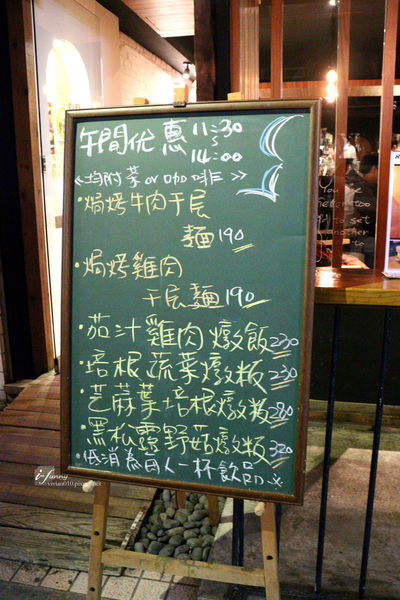 午間优惠 11:30
~
14:00
《均附菜 or 咖啡》
·焗烤牛肉千层
麵190
·焗烤雞肉
千层麵190
·茄汁雞肉燉飯230
·培根蔬菜燉飯230
·芝蔴葉培根燉飯280
·黑松露野菇燉飯320
·低消為每人一杯飲品
i-funny